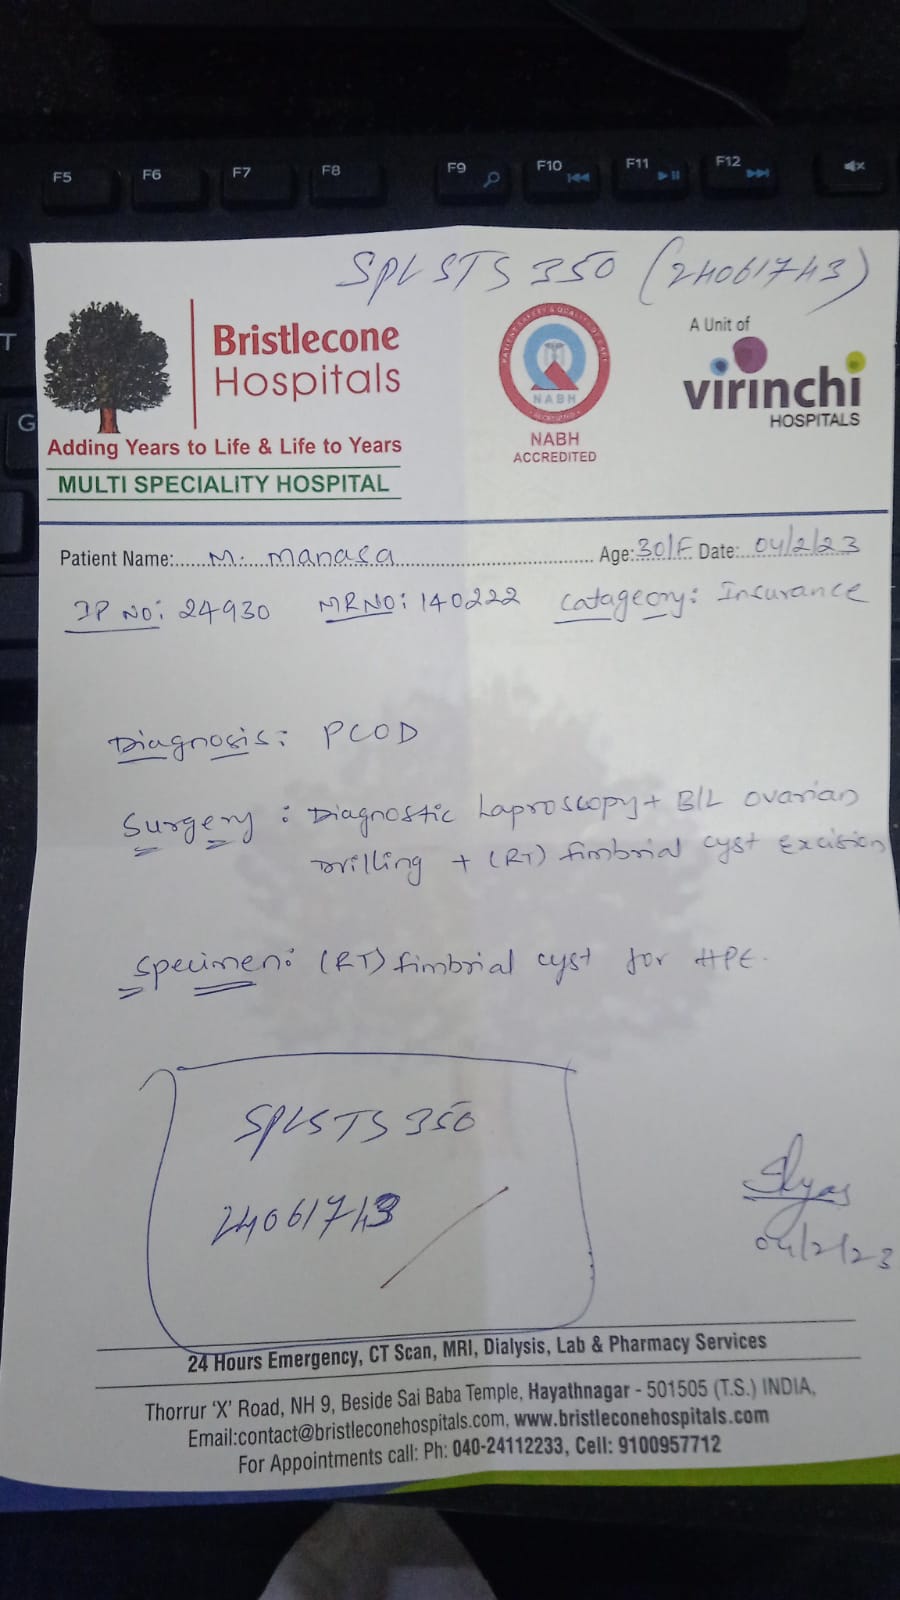 F5 F6 F7 F8 F9 F10 F11 F12
T
G
SPLSTS 350 (24061743)
Bristlecone
Hospitals
Adding Years to Life & Life to Years
MULTI SPECIALITY HOSPITAL
NABH
NABH
ACCREDITED
A Unit of
virinchi
HOSPITALS
Patient Name:.....M. Manasa............................ Age:30/F Date:..04/2/23
IP NO: 24930 MRNO: 140222 Catageory: Insurance
Diagnosis: PCOD
Surgery : Diagnostic Laproscopy + B/L ovarian
Drilling + (RT) fimbrial cyst Excision
Specimen: (RT) fimbrial cyst for HPE.
SPLSTS 350
24061743
04/2/23
24 Hours Emergency, CT Scan, MRI, Dialysis, Lab & Pharmacy Services
Thorrur 'X' Road, NH 9, Beside Sai Baba Temple, Hayathnagar - 501505 (T.S.) INDIA,
Email:contact@bristleconehospitals.com, www.bristleconehospitals.com
For Appointments call: Ph: 040-24112233, Cell: 9100957712